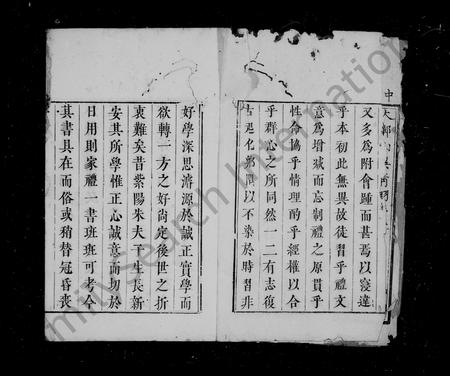 中
又多為附會踵而甚焉以寖違
乎本初此無異故徒習乎禮文
意為增減而忘制禮之原貫乎
性命協乎情理酌乎經權以合
乎群心之所同然一二有志復
古思化弟以不染於時習非
好學深思濬源於誠正實學而
欲轉一方之好尚定後世之折
衷難矣昔紫陽朱夫子生長新
安其所學惟正心誠意而切於
日用則家禮一書班班可考今
其書具在而俗或稍替冠昏喪